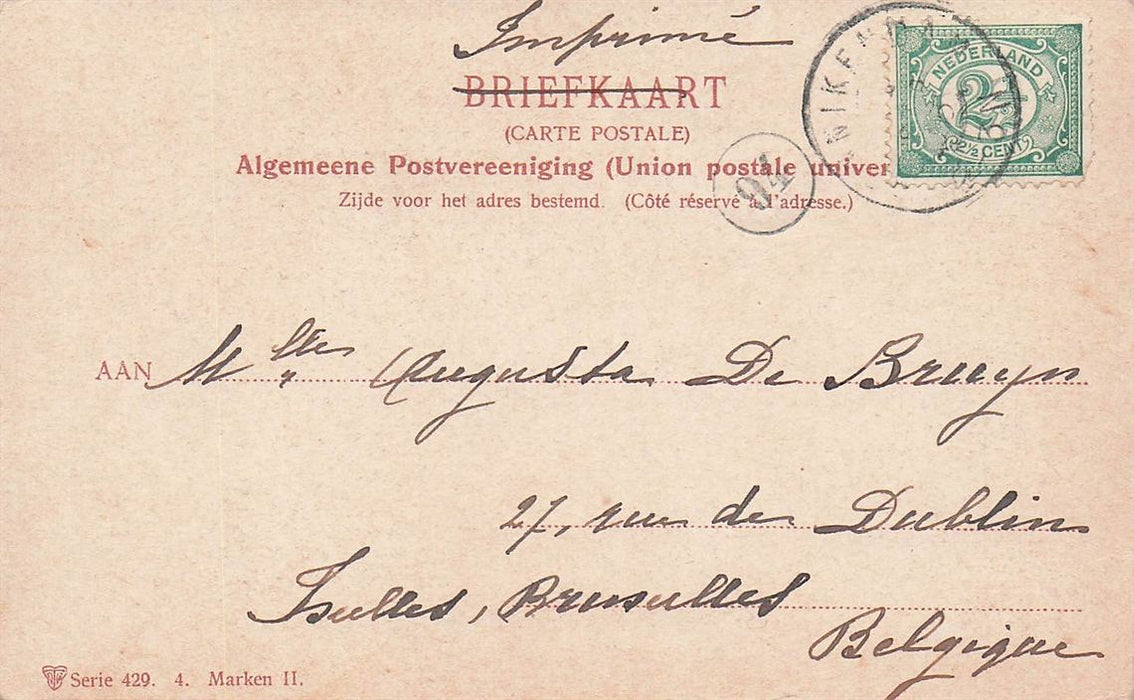 Imprimé
BRIEFKAART
(CARTE POSTALE)
Algemeene Postvereeniging (Union postale univer
Zijde voor het adres bestemd. (Côté réservé à l'adresse.)
NEDERLAND
2½
2½ CENT
94
AAN Mlle Augusta De Bruyn
27, rue de Dublin
Ixelles, Bruxelles
Belgique
Serie 429. 4. Marken II.